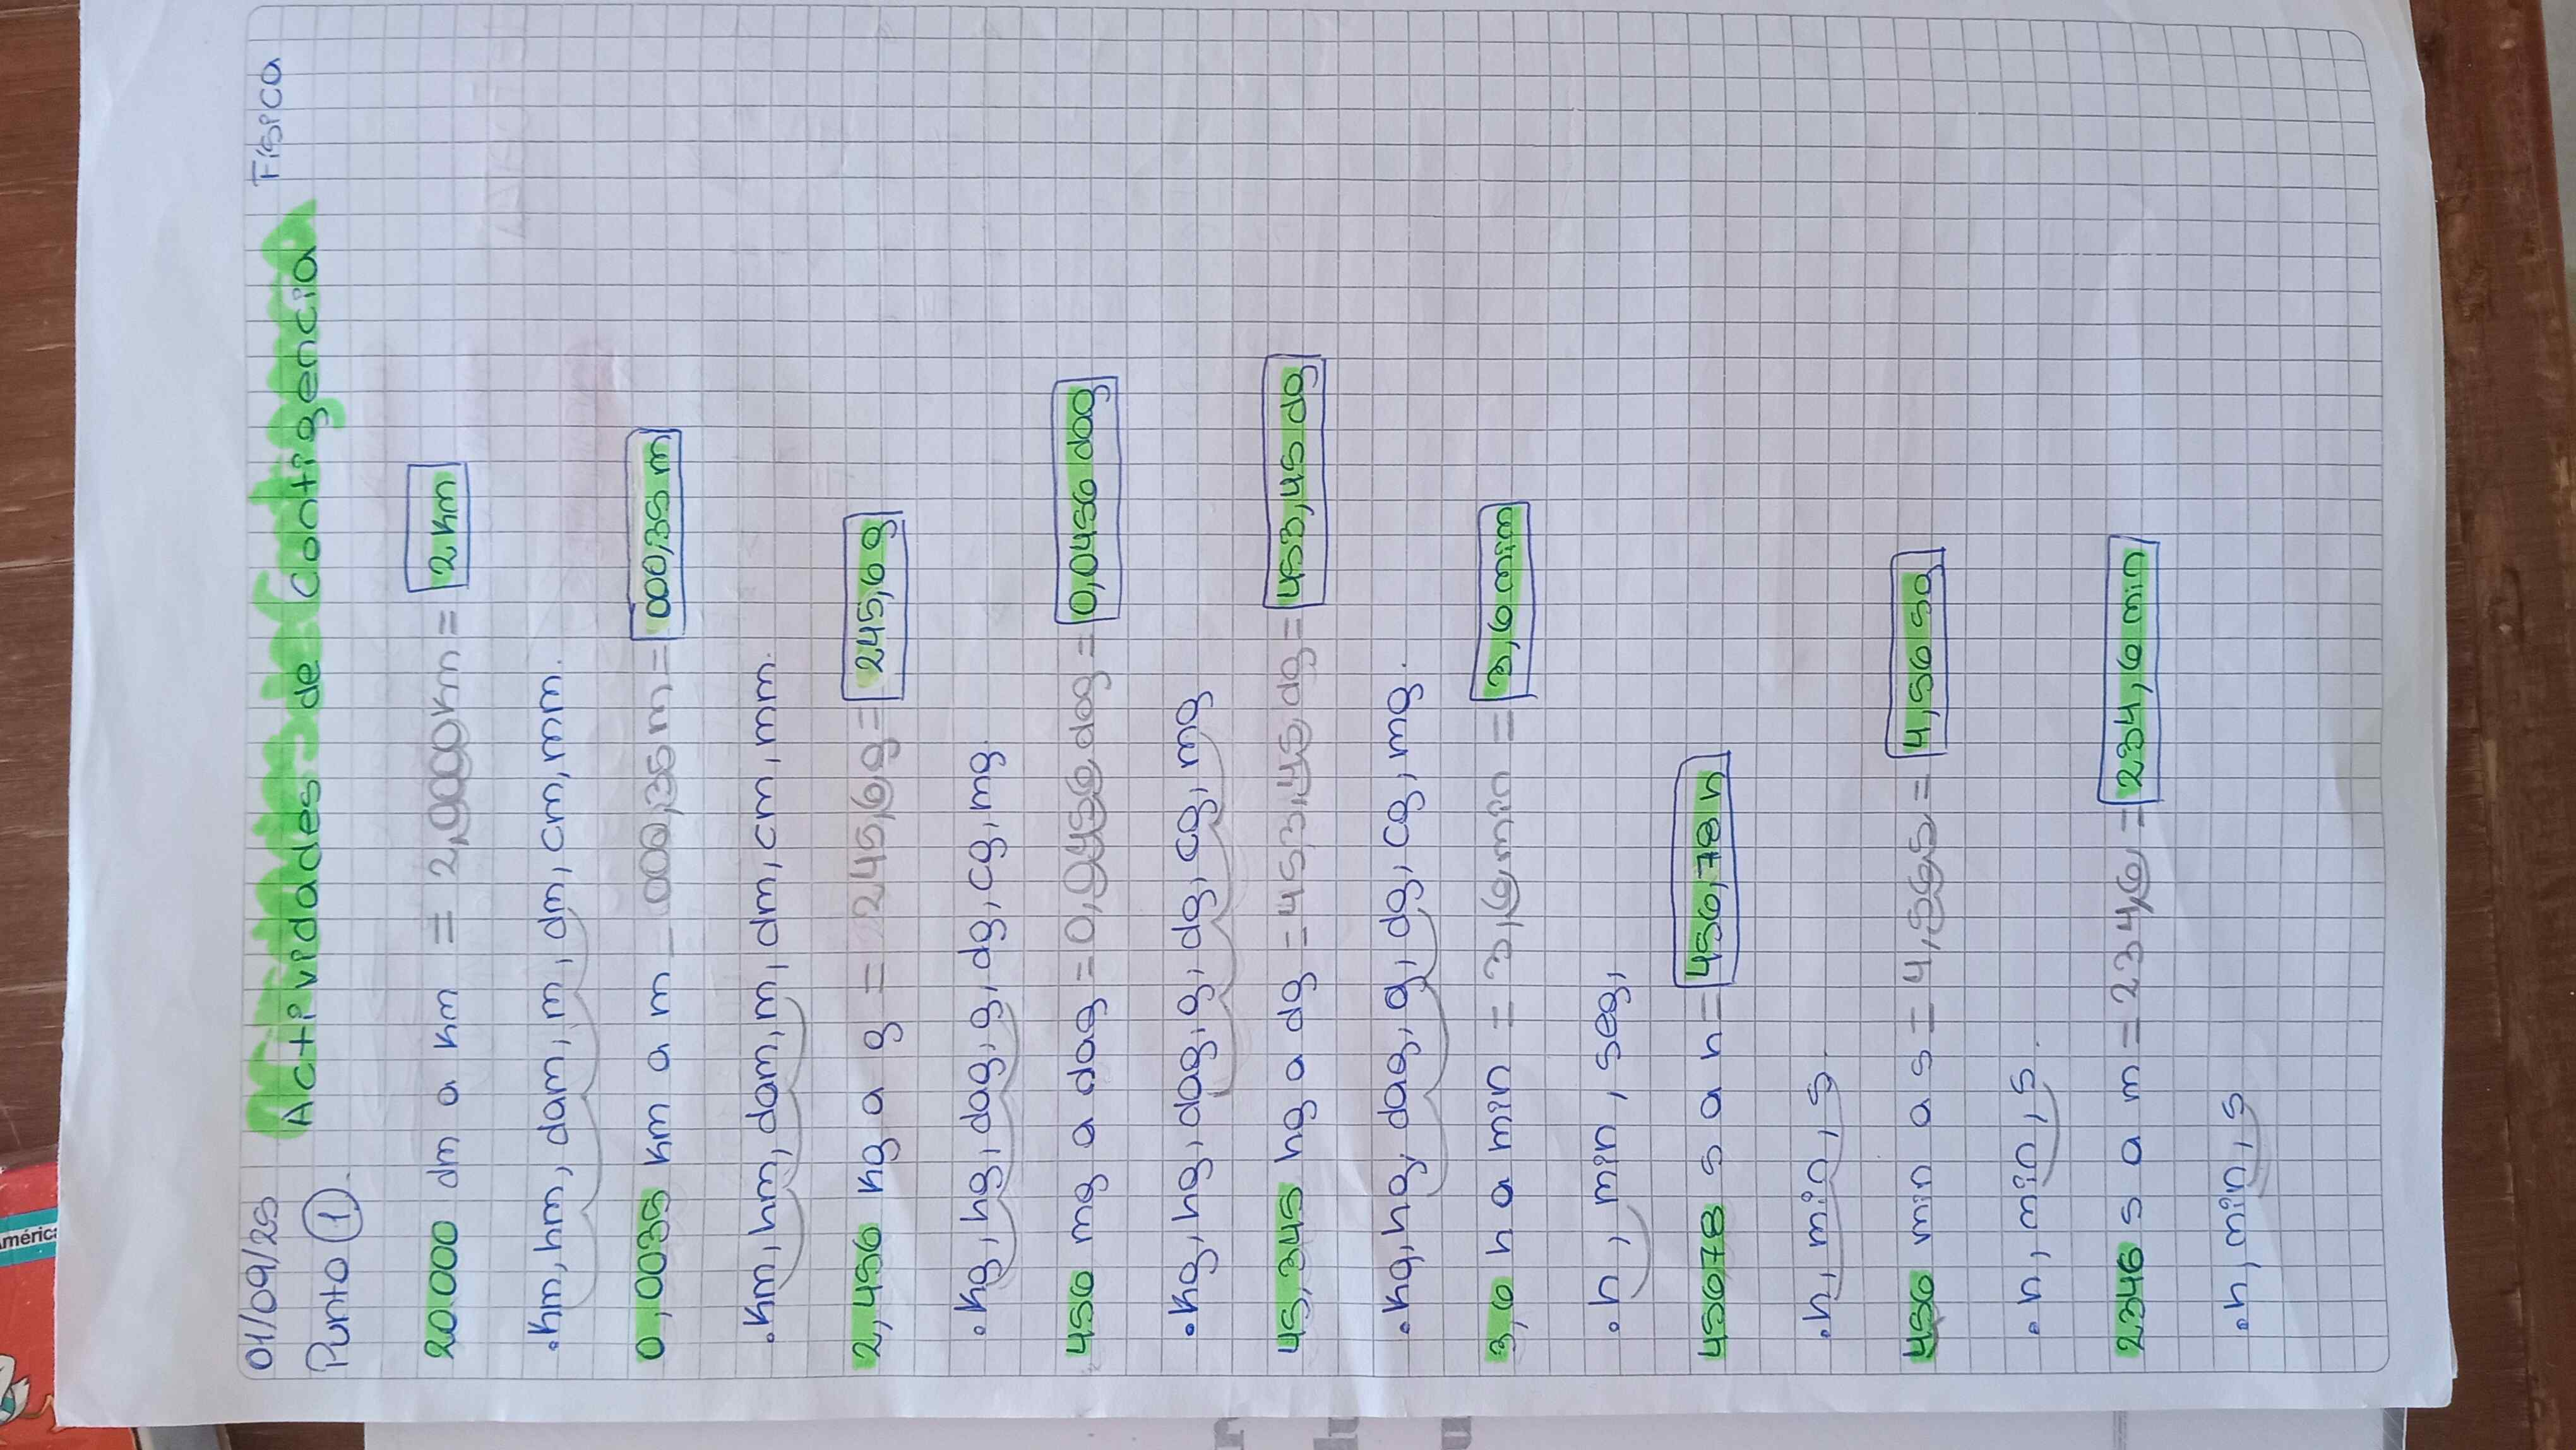 01/09/25 Actividades de Contigencia Física
Punto 1.
20000 dm a km = 2,0000 km = 2 km
.km, hm, dam, m, dm, cm, mm.
0,0035 km a m = 000,35 m = 000,35 m
.km, hm, dam, m, dm, cm, mm.
2,456 kg a g = 245,6 g = 245,6 g
.kg, hg, dag, g, dg, cg, mg.
456 mg a dag = 0,0456 dag = 0,0456 dag
.kg, hg, dag, g, dg, cg, mg
45,345 hg a dg = 453,45 dg = 453,45 dg
.kg, hg, dag, g, dg, cg, mg.
3,6 h a min = 3,6 min = 3,6 min
.h, min, seg,
45678 s a h = 456,78 h
.h, min, s.
456 min a s = 4,56 s = 4,56 sg
.h, min, s.
2346 s a m = 234,6 = 234,6 min
.h, min, s
améric